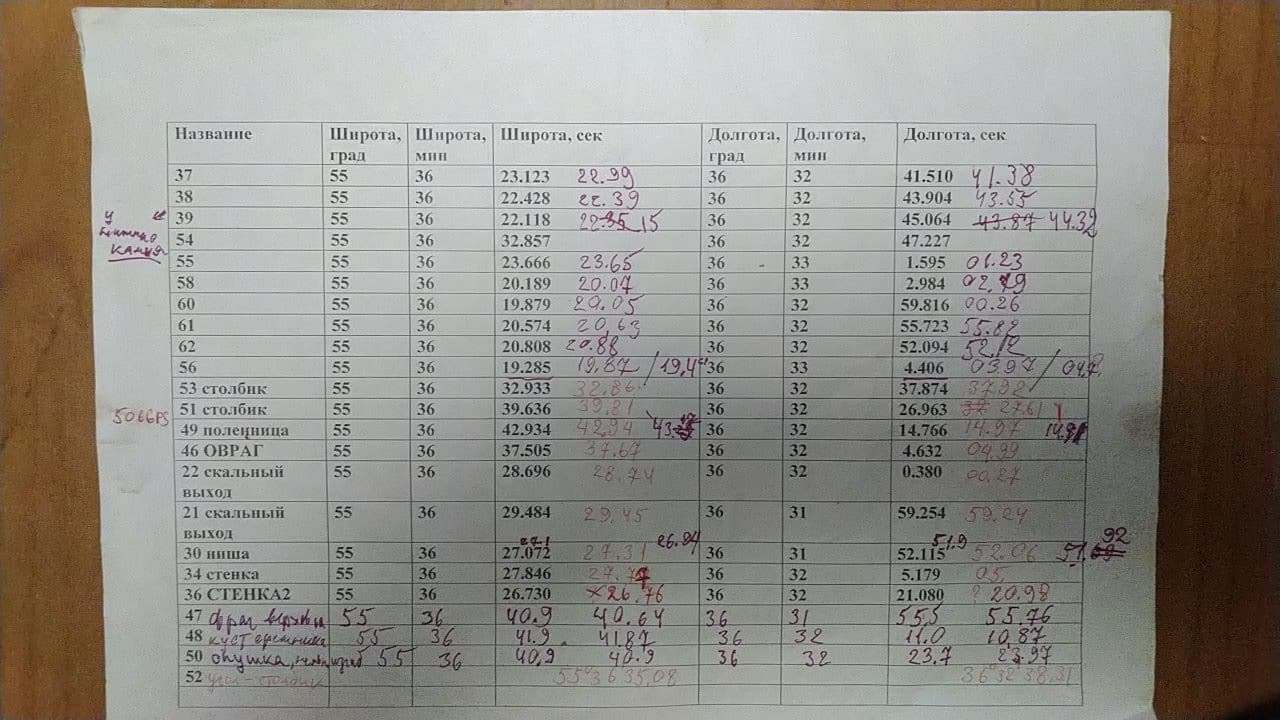 Название Широта, град Широта, мин Широта, сек Долгота, град Долгота, мин Долгота, сек
37 55 36 23.123 22.99 36 32 41.510 41.38
38 55 36 22.428 22.39 36 32 43.904 43.55
39 55 36 22.118 15 36 32 45.064 43.87 44.32
54 55 36 32.857 36 32 47.227
камня
55 55 36 23.666 23.65 36 33 1.595 01.23
58 55 36 20.189 20.07 36 33 2.984
60 55 36 19.879 20.05 36 32 59.816 00.26
61 55 36 20.574 20,63 36 32 55.723 55.82
62 55 36 20.808 20.88 36 32 52.094 52.12
56 55 36 19.285 19.87 / 19,4 36 33 4.406 03.97 /
53 столбик 55 36 32.933 32.86 36 32 37.874 37.92
50 GPS 51 столбик 55 36 39.636 39.81 36 32 26.963 27.61
49 поленница 55 36 42.934 42,94 36 32 14.766 14.97
46 ОВРАГ 55 36 37.505 37.67 36 32 4.632 04.99
22 скальный выход 55 36 28.696 28.74 36 32 0.380 00.27
21 скальный выход 55 36 29.484 29,45 36 31 59.254 59.24
27.1 26.94 51.9 92
30 ниша 55 36 27.072 27.31 36 31 52.115 52.06
34 стенка 55 36 27.846 36 32 5.179 05,
36 СТЕНКА2 55 36 26.730 26.76 36 32 21.080 ? 20.98
47 овраг 55 36 40.9 40.64 36 31 55,5 55.76
48 куст орешника 55 36 41.9 41.87 36 32 11.0 10,87
50 опушка, 55 36 40,9 40.9 36 32 23.7 23.97
52 угол-столбик 55°36 35,08 36°32 38,31